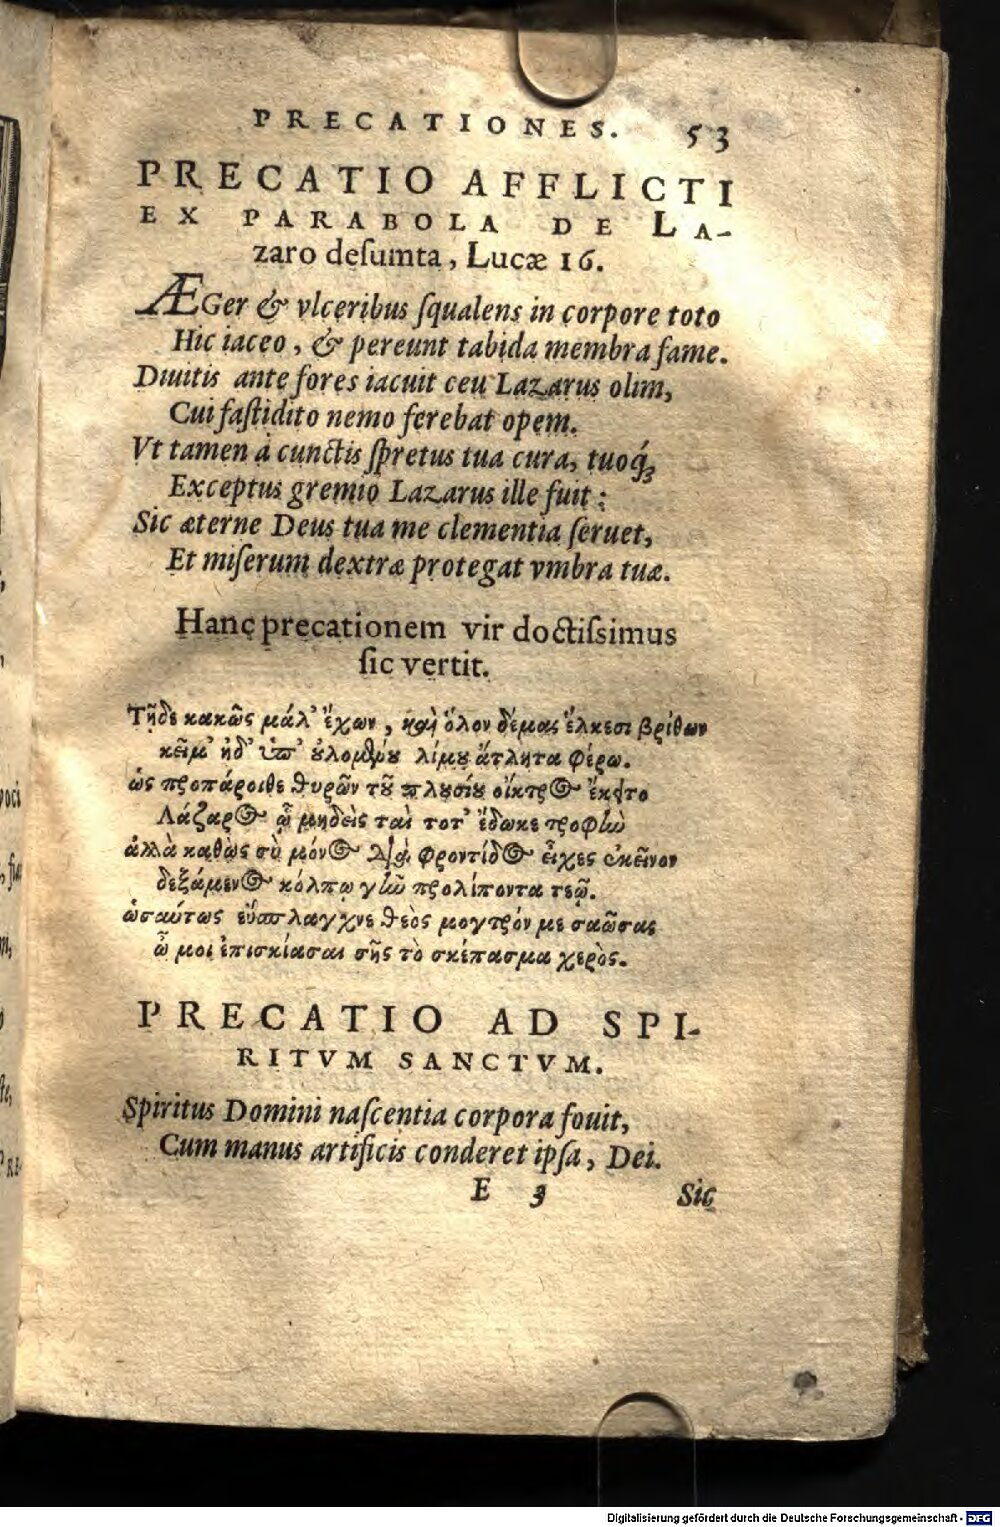 PRECATIONES. 53
PRECATIO AFFLICTI
EX PARABOLA DE LA-
zaro deſumta, Lucæ 16.
ÆGer & vlceribus ſqualens in corpore toto
Hic iaceo, & pereunt tabida membra fame.
Diuitis ante fores iacuit ceu Lazarus olim,
Cui faſtidito nemo ferebat opem.
Vt tamen à cunctis ſpretus tua cura, tuoq́ꝫ
Exceptus gremio Lazarus ille fuit:
Sic æterne Deus tua me clementia ſeruet,
Et miſerum dextræ protegat vmbra tuæ.
Hanc precationem vir doctiſsimus
ſic vertit.
Τῇδε κακῶς μάλ' ἔχων, καὶ ὅλον δέμας ἕλκεσι βρίθων
κεῖμ' ἠδ' ὑπ' οὐλομένου λίμου ἄτλητα φέρω.
ὡς προπάροιθε θυρῶν τοῦ πλουσίου οἴκτρος ἔκειτο
Λάζαρος ᾧ μηδεὶς τότ' ἔδωκε τροφὴν
ἀλλὰ καθὼς σὺ μόνος διὰ φροντίδος εἶχες ἐκεῖνον
δεξάμενος κόλπῳ γῆν προλίποντα τεῷ.
ὡσαύτως εὔσπλαγχνε θεὸς μογερόν με σαῶσας
ὦ μοι ἐπισκίασαι σῆς τὸ σκέπασμα χερὸς.
PRECATIO AD SPI-
RITVM SANCTVM.
Spiritus Domini naſcentia corpora fouit,
Cum manus artificis conderet ipſa, Dei.
E 3 Sic
Digitalisierung gefördert durch die Deutsche Forschungsgemeinschaft - DFG